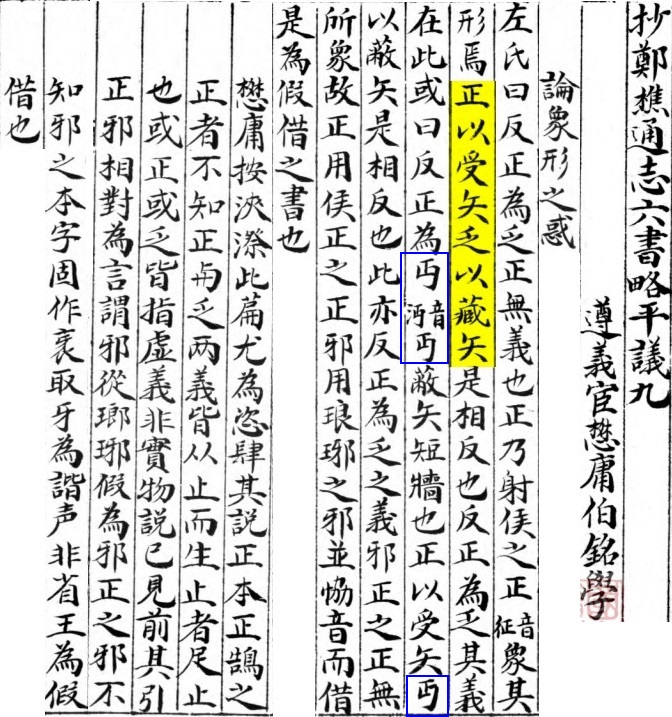 抄鄭樵通志六書略平議九
遵義宦懋庸伯銘學
論象形之惑
左氏曰反正為乏正無義也正乃射侯之正音征象其
形焉正以受矢乏以藏矢是相反也反正為乏其義
在此或曰反正為丏音沔丏蔽矢短牆也正以受矢丏
以蔽矢是相反也此亦反正為乏之義邪正之正無
所象故正用侯正之正邪用琅琊之邪並恊音而借
是為假借之書也
懋庸按浹漈此篇尤為恣肆其說正本正鵠之
正者不知正与乏两義皆从止而生止者足止
也或正或乏皆指虛義非實物說已見前其引
正邪相對為言謂邪從瑯琊假為邪正之邪不
知邪之本字固作衺取牙為諧声非省王為假
借也